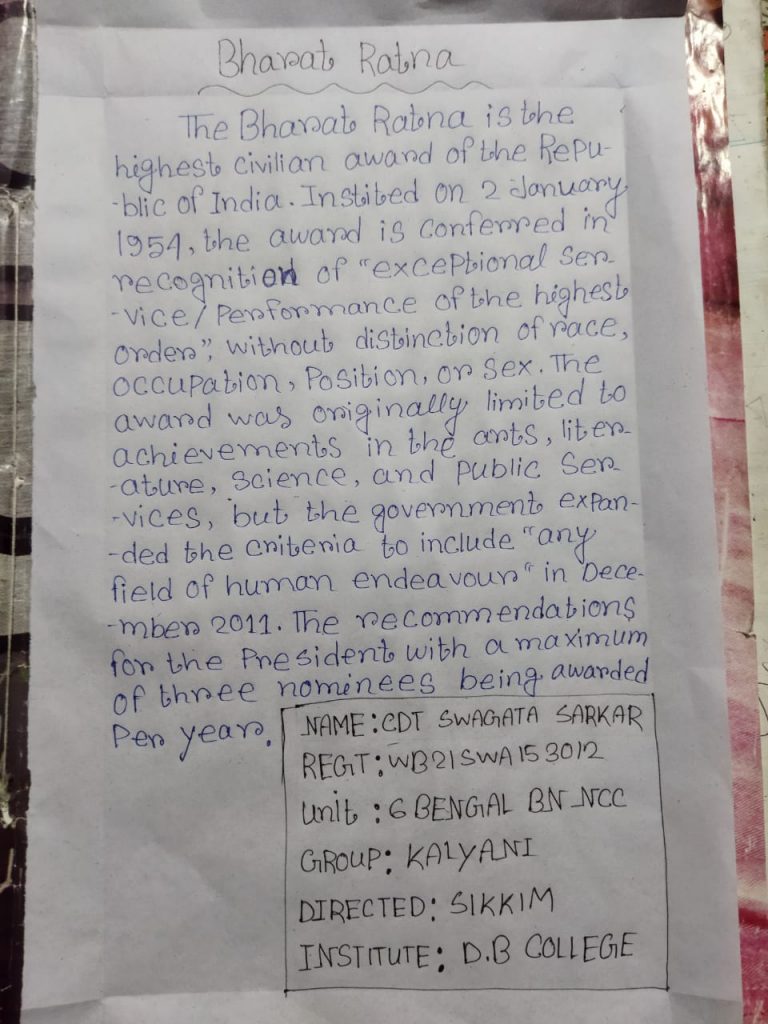 Bharat Ratna
The Bharat Ratna is the
highest civilian award of the Repu-
-blic of India. Instited on 2 January
1954, the award is conferred in
recognition of "exceptional ser-
-vice/performance of the highest
order", without distinction of race,
occupation, position, or sex. The
award was originally limited to
achievements in the arts, liter-
-ature, science, and public ser-
-vices, but the government expan-
-ded the criteria to include "any
field of human endeavour" in Dece-
-mber 2011. The recommendations
for the President with a maximum
of three nominees being awarded
Per year.
NAME: CDT SWAGATA SARKAR
REGT: WB21SWA153012
Unit: 6 BENGAL BN NCC
GROUP: KALYANI
DIRECTED: SIKKIM
INSTITUTE: D.B COLLEGE